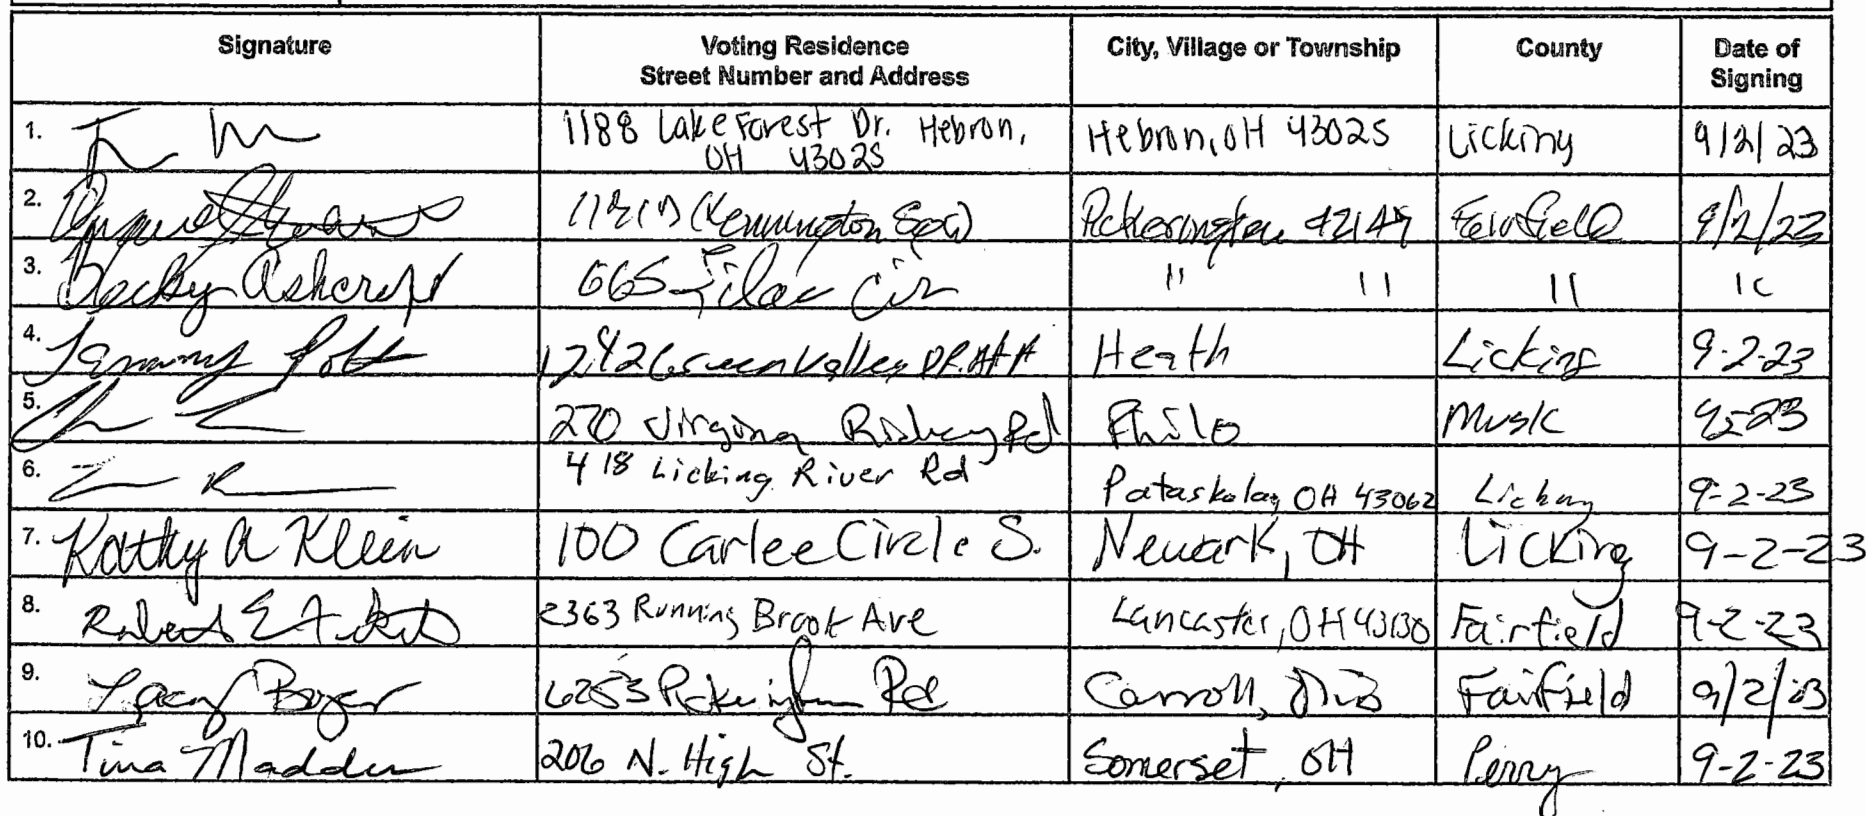 Signature Voting Residence Street Number and Address City, Village or Township County Date of Signing
1. 1188 Lake Forest Dr. Hebron, OH 43025 Hebron, OH 43025 Licking 9/2/23
2. Pickerington Fairfield
3. Becky Ashcraft 665 Lilac Cir " " " "
4. Tammy Heath Licking 9-2-23
5. 270 Philo Musk
6. 418 Licking River Rd Pataskala, OH 43062 Licking 9-2-23
7. Kathy A Klein 100 Carlee Circle S. Newark, OH Licking 9-2-23
8. Robert E 2363 Running Brook Ave Lancaster, OH 43130 Fairfield 9-2-23
9. Boyer 6253 Rd Carroll, Ohio Fairfield 9/2/23
10. Tina Madden 206 N. High St. Somerset, OH Perry 9-2-23